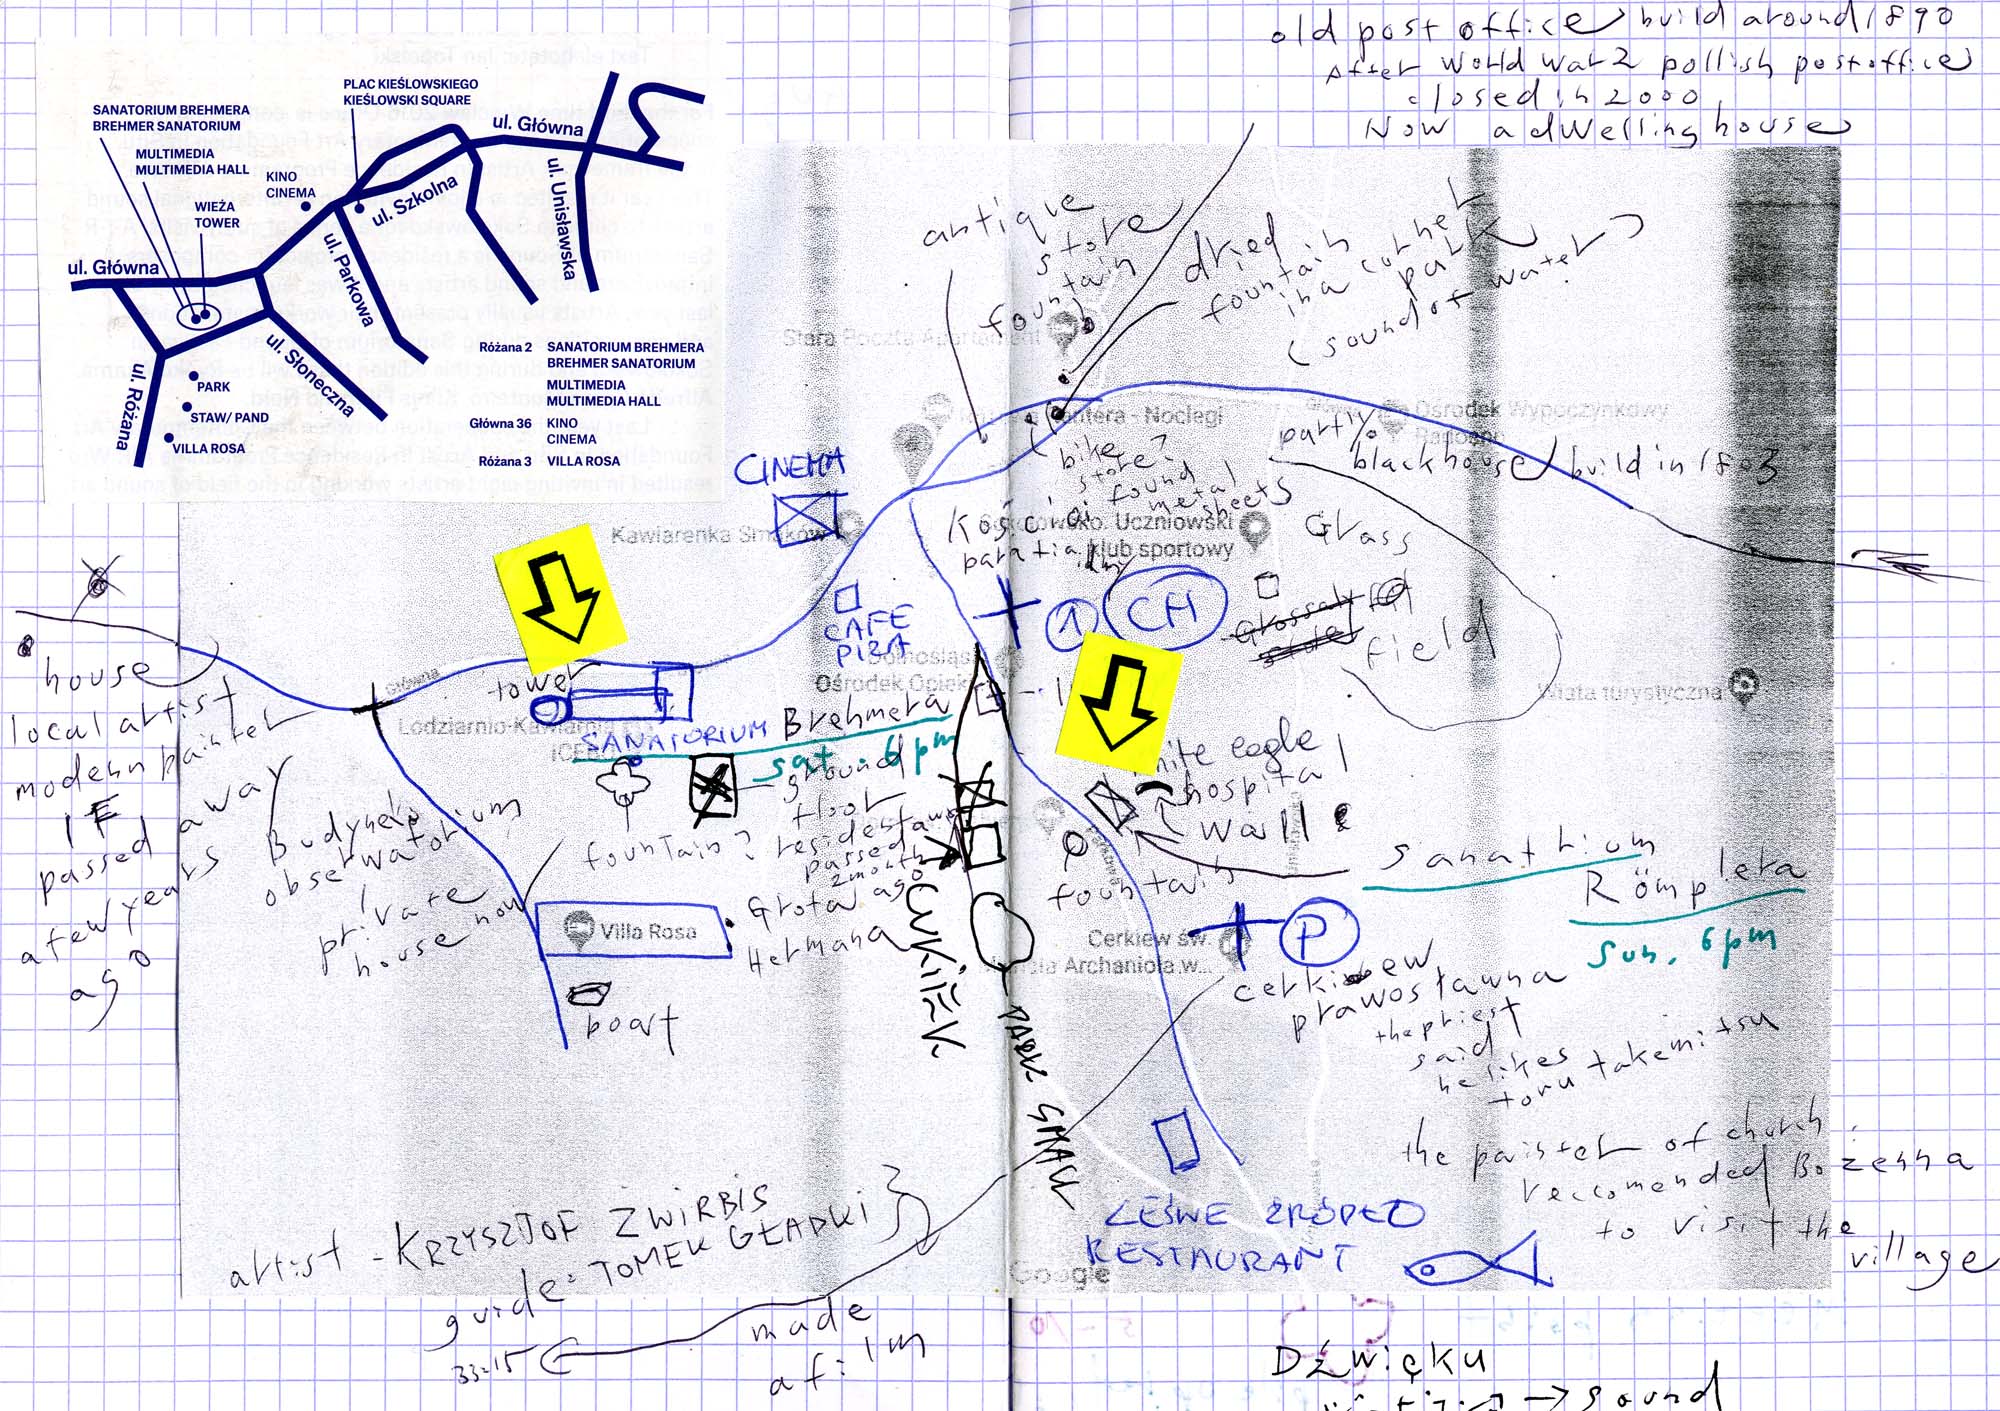 old post office build around 1890
After world war 2 pollish postoffice
closed in 2000
Now a dwelling house
PLAC KIEŚLOWSKIEGO
KIEŚLOWSKI SQUARE
SANATORIUM BREHMERA
BREHMER SANATORIUM
MULTIMEDIA
MULTIMEDIA HALL
KINO
CINEMA
WIEŻA
TOWER
ul. Główna
ul. Szkolna
ul. Unisławska
ul. Główna
ul. Parkowa
ul. Słoneczna
ul. Różana
PARK
STAW/ PAND
VILLA ROSA
Różana 2 SANATORIUM BREHMERA
BREHMER SANATORIUM
MULTIMEDIA
MULTIMEDIA HALL
Główna 36 KINO
CINEMA
Różana 3 VILLA ROSA
antique
store
fountain
dried
fountain
in a corner
park
(sound of water)
Stara Poczta Apartament
Pantera - Noclegi
Ośrodek Wypoczynkowy
Radosno
partly
blackhouse build in 1803
bike
store?
found
metal
sheets
CINEMA
Kawiarenka Smaków
Kościół
parafialny
Uczniowski
klub sportowy
Grass
field
CH
CAFE
PIZA
Dolnośląski
Ośrodek Opieki
Wiata turystyczna
Główna
tower
Lodziarnio-Kawiarnia
SANATORIUM Brehmera
sat. 6 pm
ground
floor
resident
passed away
2 month
ago
fountain?
Grota
Hermana
house
local artist
modern painter
passed away
a few years
ago
Budynek
obserwatorium
private
house now
Villa Rosa
boat
white eagle
hospital
wall
fountain
Sanathium
Römplera
Sun. 6 pm
P
Cerkiew św.
Michała Archanioła w...
cerkiew
prawosławna
the priest
said
he likes
toru takemitsu
the painter of church
reccomended Bożenna
to visit the
village
PARK SMALL
LEŚNE ŹRÓDŁO
RESTAURANT
Google
artist - KRZYSZTOF ŻWIRBIS
guide: TOMEK GŁADKI
33-15
made
a film
Dźwięku
→ sound